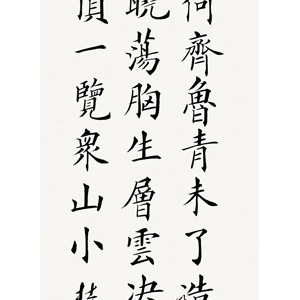 何齊魯青未了造
曉蕩胸生層雲決
頂一覽衆山小